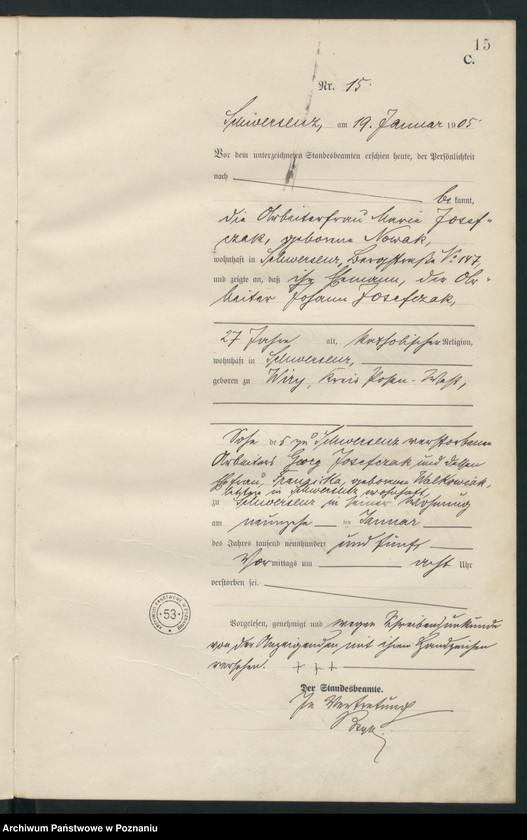 15
C.
Nr. 15
Schwersenz, am 19. Januar 1905
Vor dem unterzeichneten Standesbeamten erschien heute, der Persönlichkeit
nach
be kannt,
die Arbeiterfrau Marie Josef=
czak, geborene Nowak,
wohnhaft in Schwersenz, Bergstraße No 147,
und zeigte an, daß ihr Ehemann, der Ar=
beiter Johann Josefczak,
27 Jahre alt, katholischer Religion,
wohnhaft in Schwersenz,
geboren zu Wiry, Kreis Posen-West,
Sohn des zu Schwersenz verstorbenen
Arbeiters Georg Josefczak und dessen
Ehefrau, Franziska, geborene Walkowiak,
letztere in Schwersenz wohnhaft,
zu Schwersenz in seiner Wohnung
am neunzehn ten Januar
des Jahres tausend neunhundert und fünf
Vor mittags um acht Uhr
verstorben sei.
Vorgelesen, genehmigt und wegen Schreibensunkunde
von der Anzeigenden mit ihrem Handzeichen
versehen. + + +
Der Standesbeamte.
In Vertretung
ARCHIWUM PAŃSTWOWE W POZNANIU
53
Archiwum Państwowe w Poznaniu